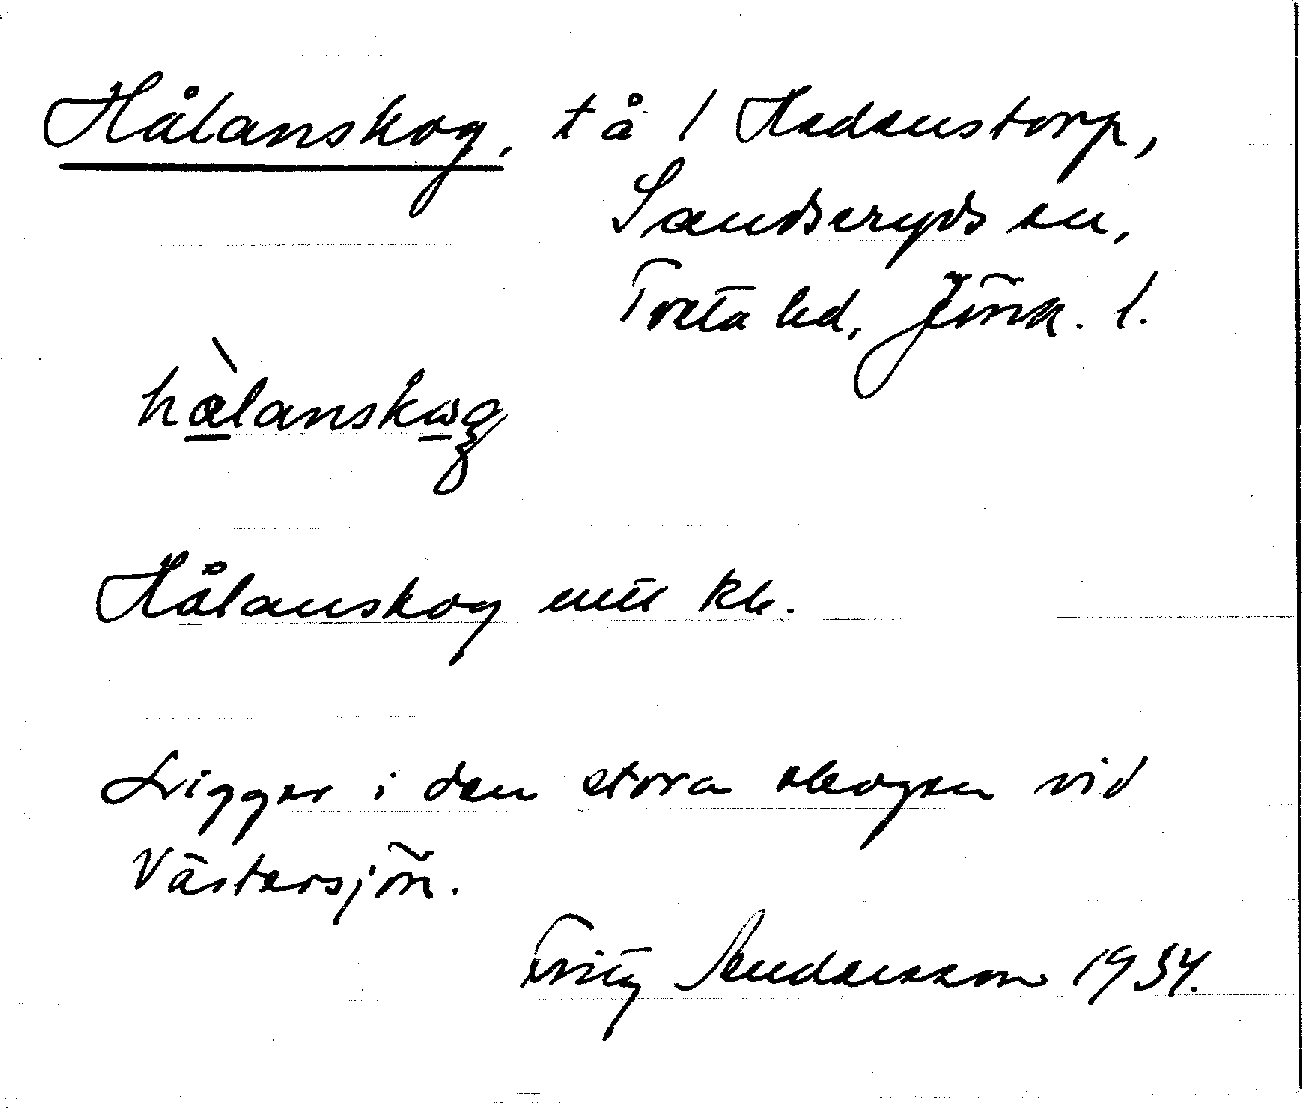 Hålanskog, tå / Hedenstorp,
Sandseryds sn,
Tveta hd, Jönk. l.
hàlanskωg
Hålanskog utt kb.
Ligger i den stora skogen vid
Västersjön.
Fritz Andersson 1934.